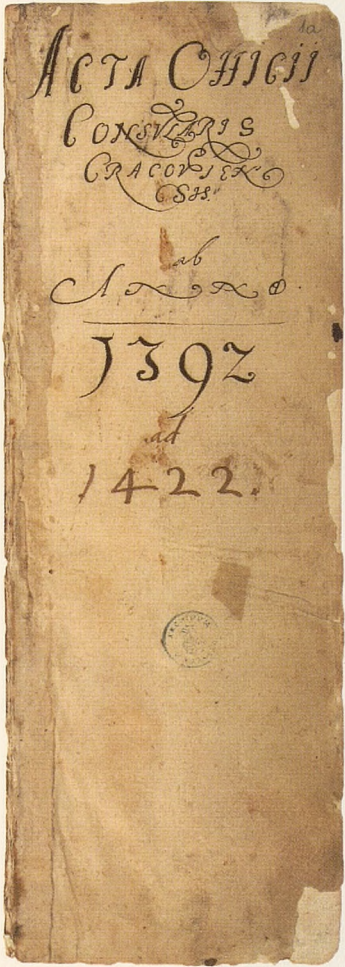 1a
ACTA OFFICII
CONSULARIS
CRACOVIEN
SIS.
ab
ANNO.
1392
ad
1422.